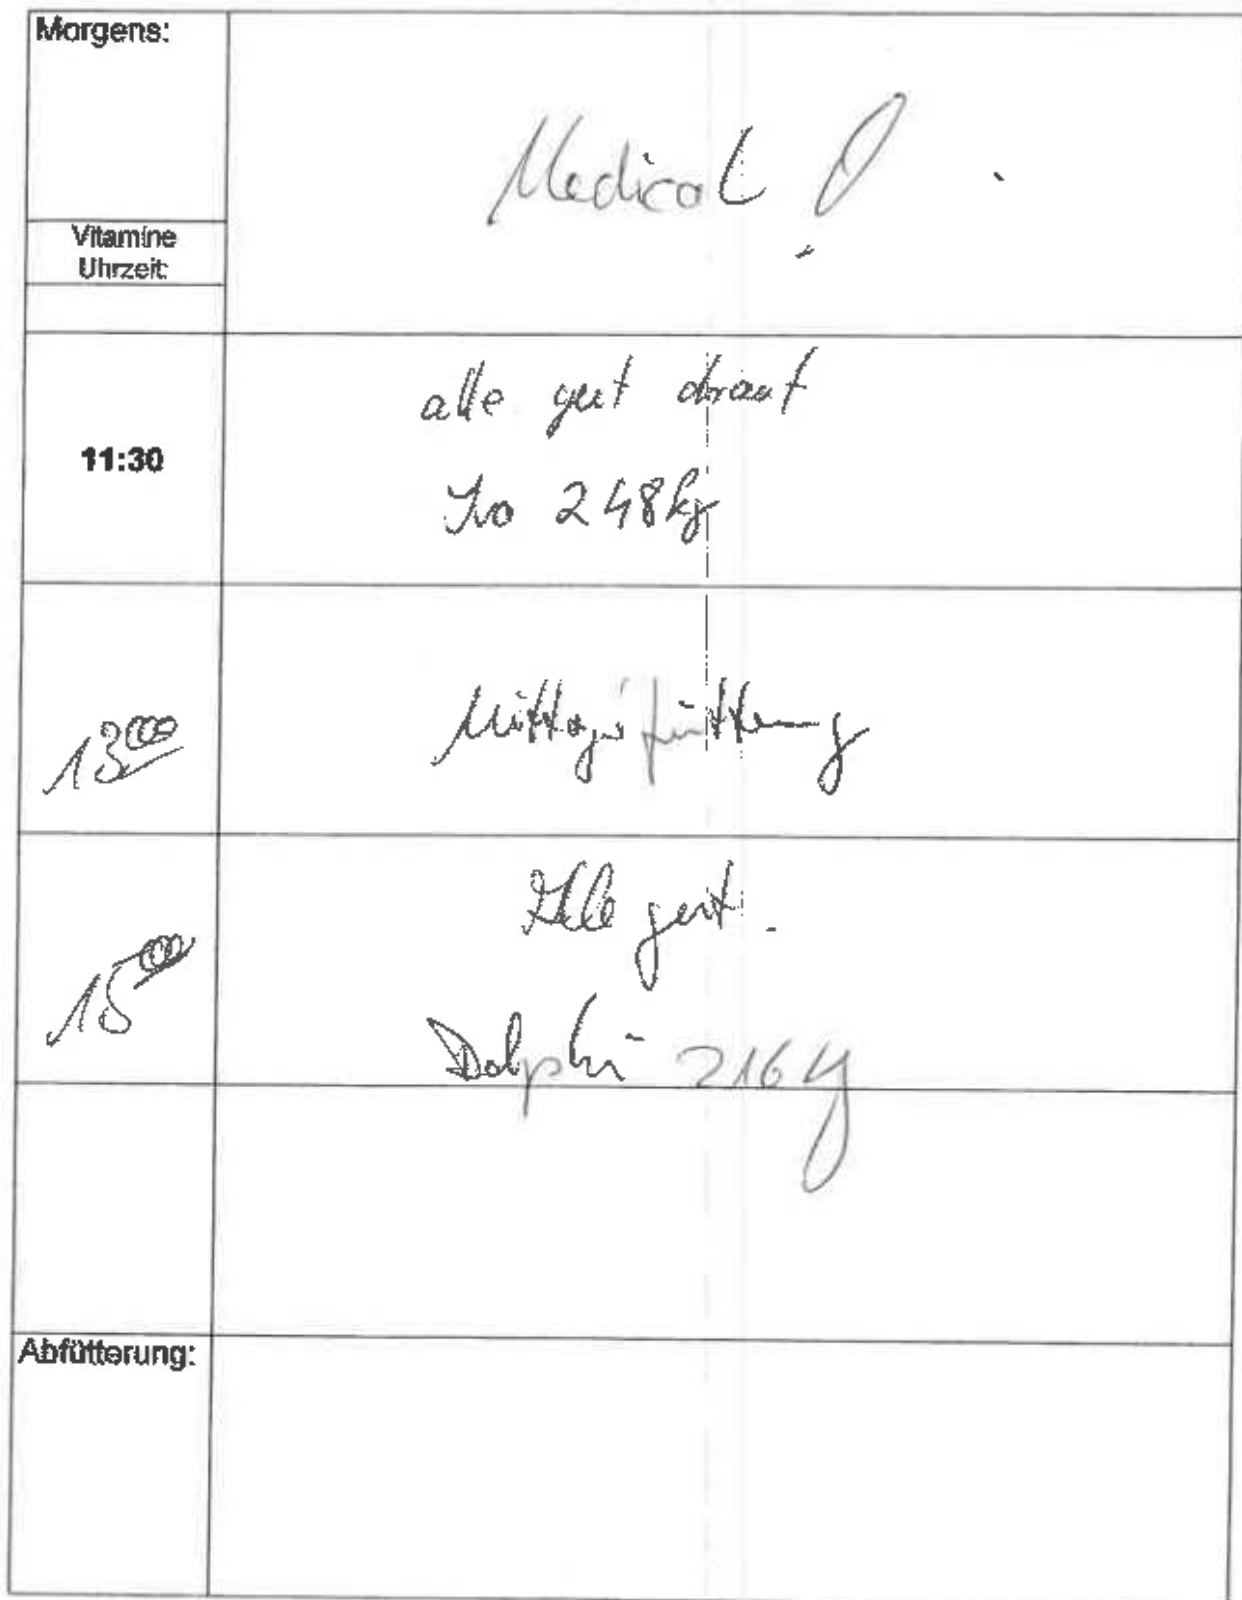 Morgens:
Medical !
Vitamine
Uhrzeit:
11:30
alle gut drauf
Ivo 248kg
13 00
Mittagsfütterung
15 00
Alle gut.
Delphi 216 kg
Abfütterung: